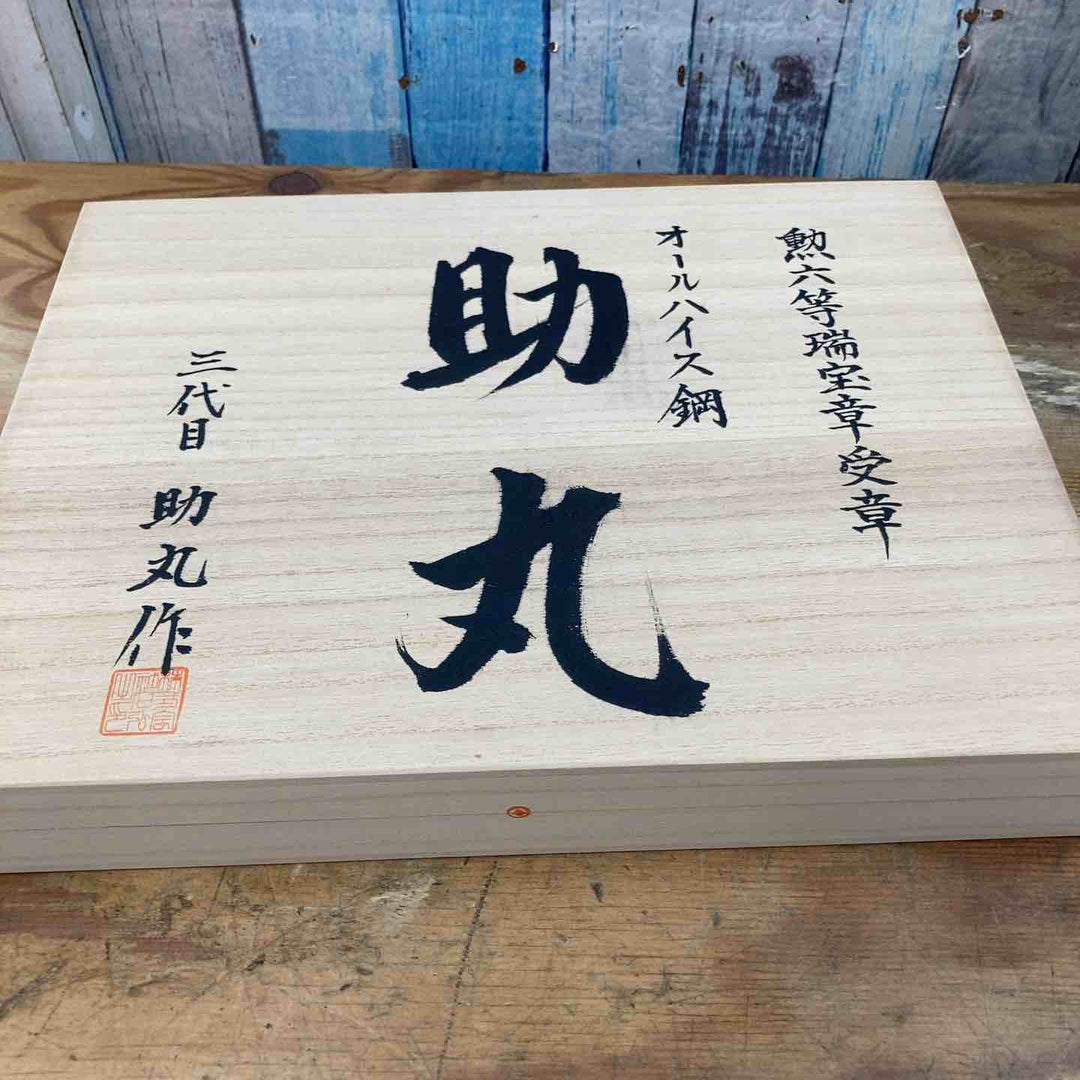 勲六等瑞宝章受章
オールハイス鋼
助丸
三代目 助丸作